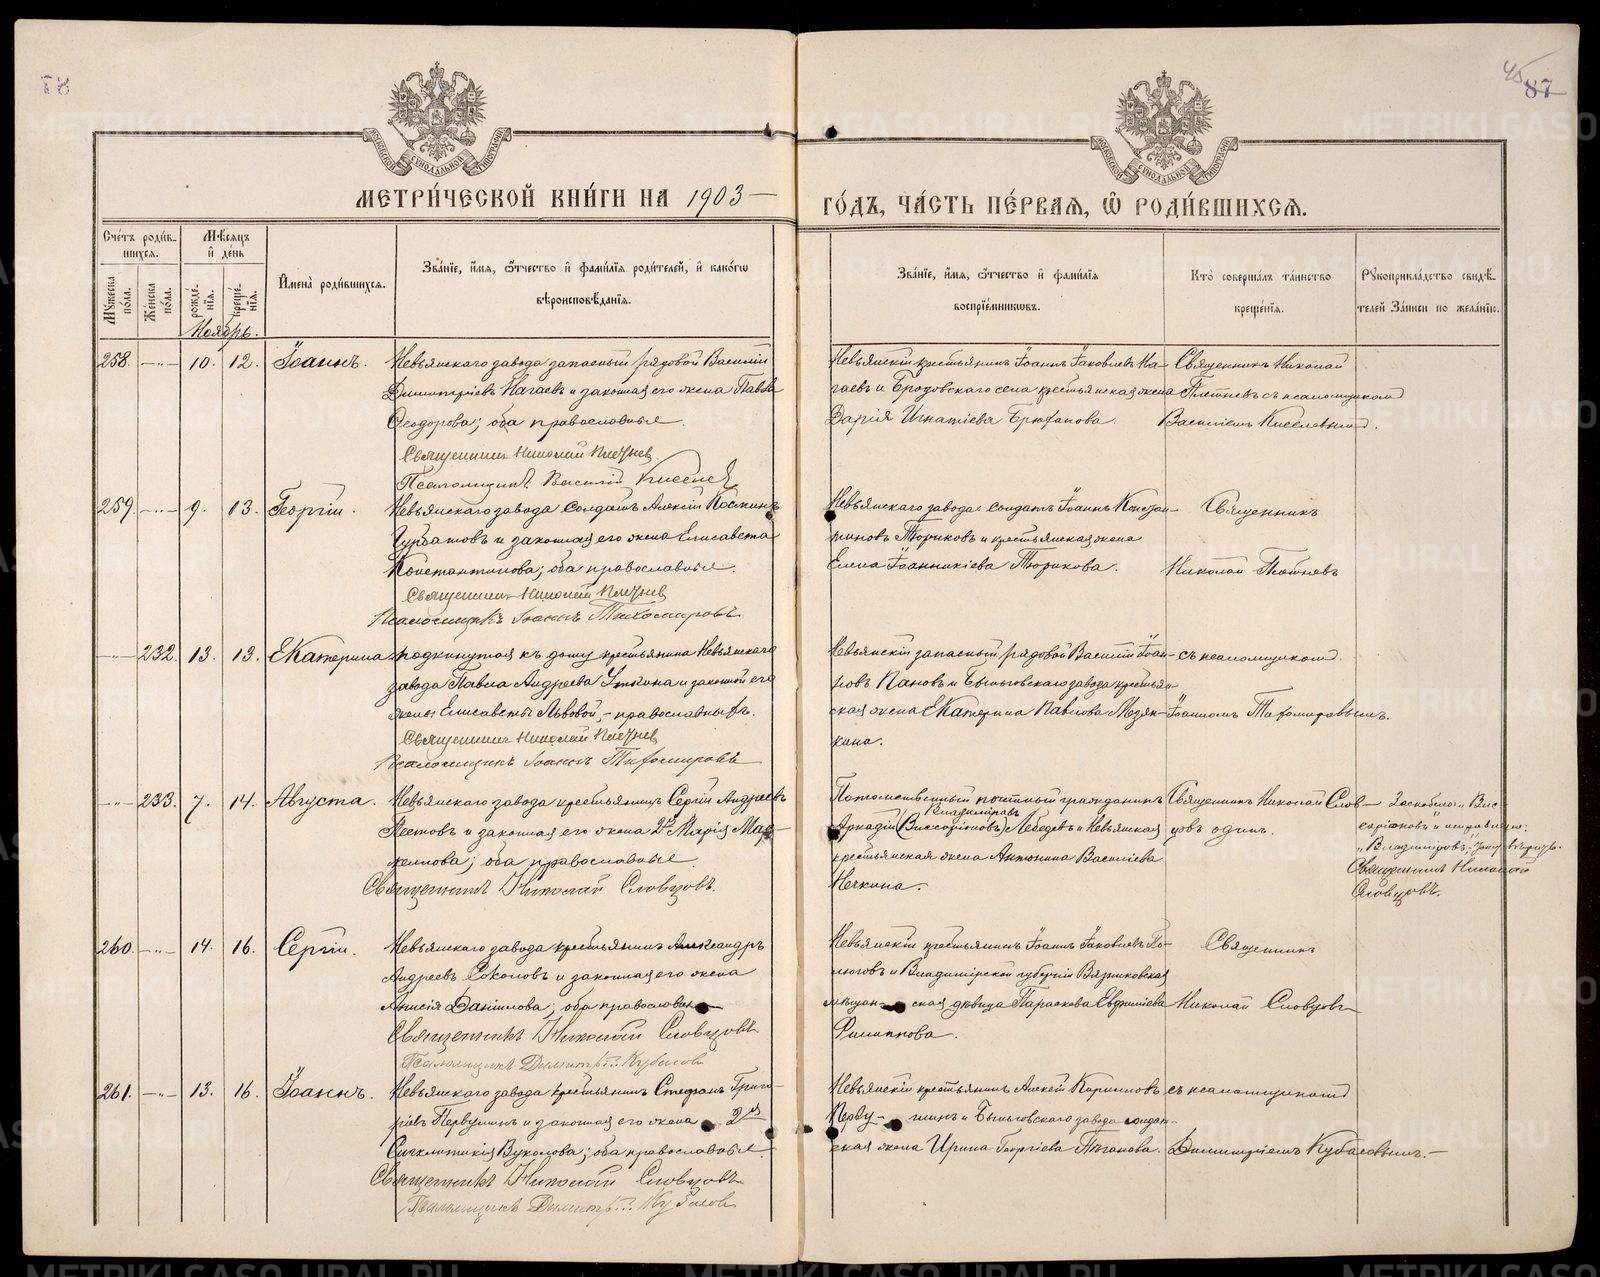 87
45
87
МОСКОВСКОЙ СѴНОДАЛЬНОЙ ТИПОГРАФІИ
МОСКОВСКОЙ СѴНОДАЛЬНОЙ ТИПОГРАФІИ
МЕТРИ́ЧЕСКОЙ КНИ́ГИ НА 1903 —
ГО́ДЪ, ЧА́СТЬ ПЕ́РВАѦ, Ѡ҆ РОДИ́ВШИХСѦ.
Сче́тъ роди́в-
шихсѧ.
Мꙋ́жеска по́ла.
Же́нска по́ла.
Мѣ́сѧцъ
и҆ де́нь
рожде́-нїѧ.
креще́-нїѧ.
Ноябрь.
И҆мена̀ роди́вшихсѧ.
Зва́нїе, и҆́мѧ, ѻ҆́тчество и҆ фами́лїѧ роди́телей, и҆ како́гѡ
вѣроисповѣ́данїѧ.
Зва́нїе, и҆́мѧ, ѻ҆́тчество и҆ фами́лїѧ
воспрїе́мникѡвъ.
Кто̀ соверша́лъ та́инство
креще́нїѧ.
Рꙋкоприкла́дство свидѣ́-
телей за́писи по жела́нїю.
258. —„— 10. 12. Іоаннъ.
Невьянскаго завода запасный рядовой Василій
Димитріевъ Нагаевъ и законная его жена Павла
Ѳеодорова; оба православные.
Священникъ Николай Плотневъ
Псаломщикъ Василій Киселевъ
Невьянскій крестьянинъ Іоаннъ Іаковлевъ На-
гаевъ и Бродовскаго села крестьянская жена
Дарія Игнатіева Брюханова.
Священникъ Николай
Плотневъ съ псаломщикомъ
Василіемъ Киселевымъ.
259. —„— 9. 13. Георгій.
Невьянскаго завода солдатъ Алексій Косминъ
Гурбатовъ и законная его жена Елисавета
Константинова; оба православные.
Священникъ Николай Плотневъ
Псаломщикъ Іоаннъ Тихомировъ
Невьянскаго завода: солдатъ Іоаннъ Констан-
тиновъ Тюриковъ и крестьянская жена
Елена Іоанникіева Тюрикова.
Священникъ
Николай Плотневъ
—„— 232. 13. 13. Екатерина
подкинутая къ дому крестьянина Невьянскаго
завода Павла Андреева Уткина и законной его
жены Елисаветы Львовой, - православныхъ.
Священникъ Николай Плотневъ
Псаломщикъ Іоаннъ Тихомировъ
Невьянскій запасный рядовой Василій Іоан-
новъ Пановъ и Быньговскаго завода крестьян-
ская жена Екатерина Павлова Мезян-
кина.
съ псаломщикомъ
Іоанномъ Тихомировымъ.
—„— 233. 7. 14. Августа.
Невьянскаго завода крестьянинъ Сергій Андреевъ
Пестовъ и законная его жена Марія Мар-
келлова; оба православные.
Священникъ Николай Словцовъ.
Потомственный почетный гражданинъ
Владиміровъ
Аркадій (Виссаріоновъ) Лебедевъ и Невьянская
крестьянская жена Антонина Василіева
Нечкина.
Священникъ Николай Слов-
цовъ одинъ.
Заскоблено „Вис-
саріоновъ" и исправлено:
„Владиміровъ",
Священникъ Николай
Словцовъ.
260. —„— 14. 16. Сергій.
Невьянскаго завода крестьянинъ Александръ
Андреевъ Соколовъ и законная его жена
Анисія Даніилова; оба православны
Священникъ Николай Словцовъ
Псаломщикъ Димитрій Кубасов
Невьянскій крестьянинъ Іоаннъ Іаковлевъ По-
люговъ и Владимірской губерніи Вязниковская
мѣщан- ская дѣвица Параскева Евфиміева
Филиппова.
Священникъ
Николай Словцовъ
261. —„— 13. 16. Іоаннъ.
Невьянскаго завода крестьянинъ Стефанъ Григо-
ріевъ Первушинъ и законная его жена
Сигклитикія Вуколова; оба православные
Священникъ Николай Словцовъ
Псаломщикъ Димитрій Кубасов
Невьянскій крестьянинъ Алексій Кирилловъ
Перву- шинъ и Быньговскаго завода солдат-
ская жена Ирина Георгіева Пѣганова.
съ псаломщикомъ
Димитріемъ Кубасовымъ. —
METRIKI.GASO-URAL.RU